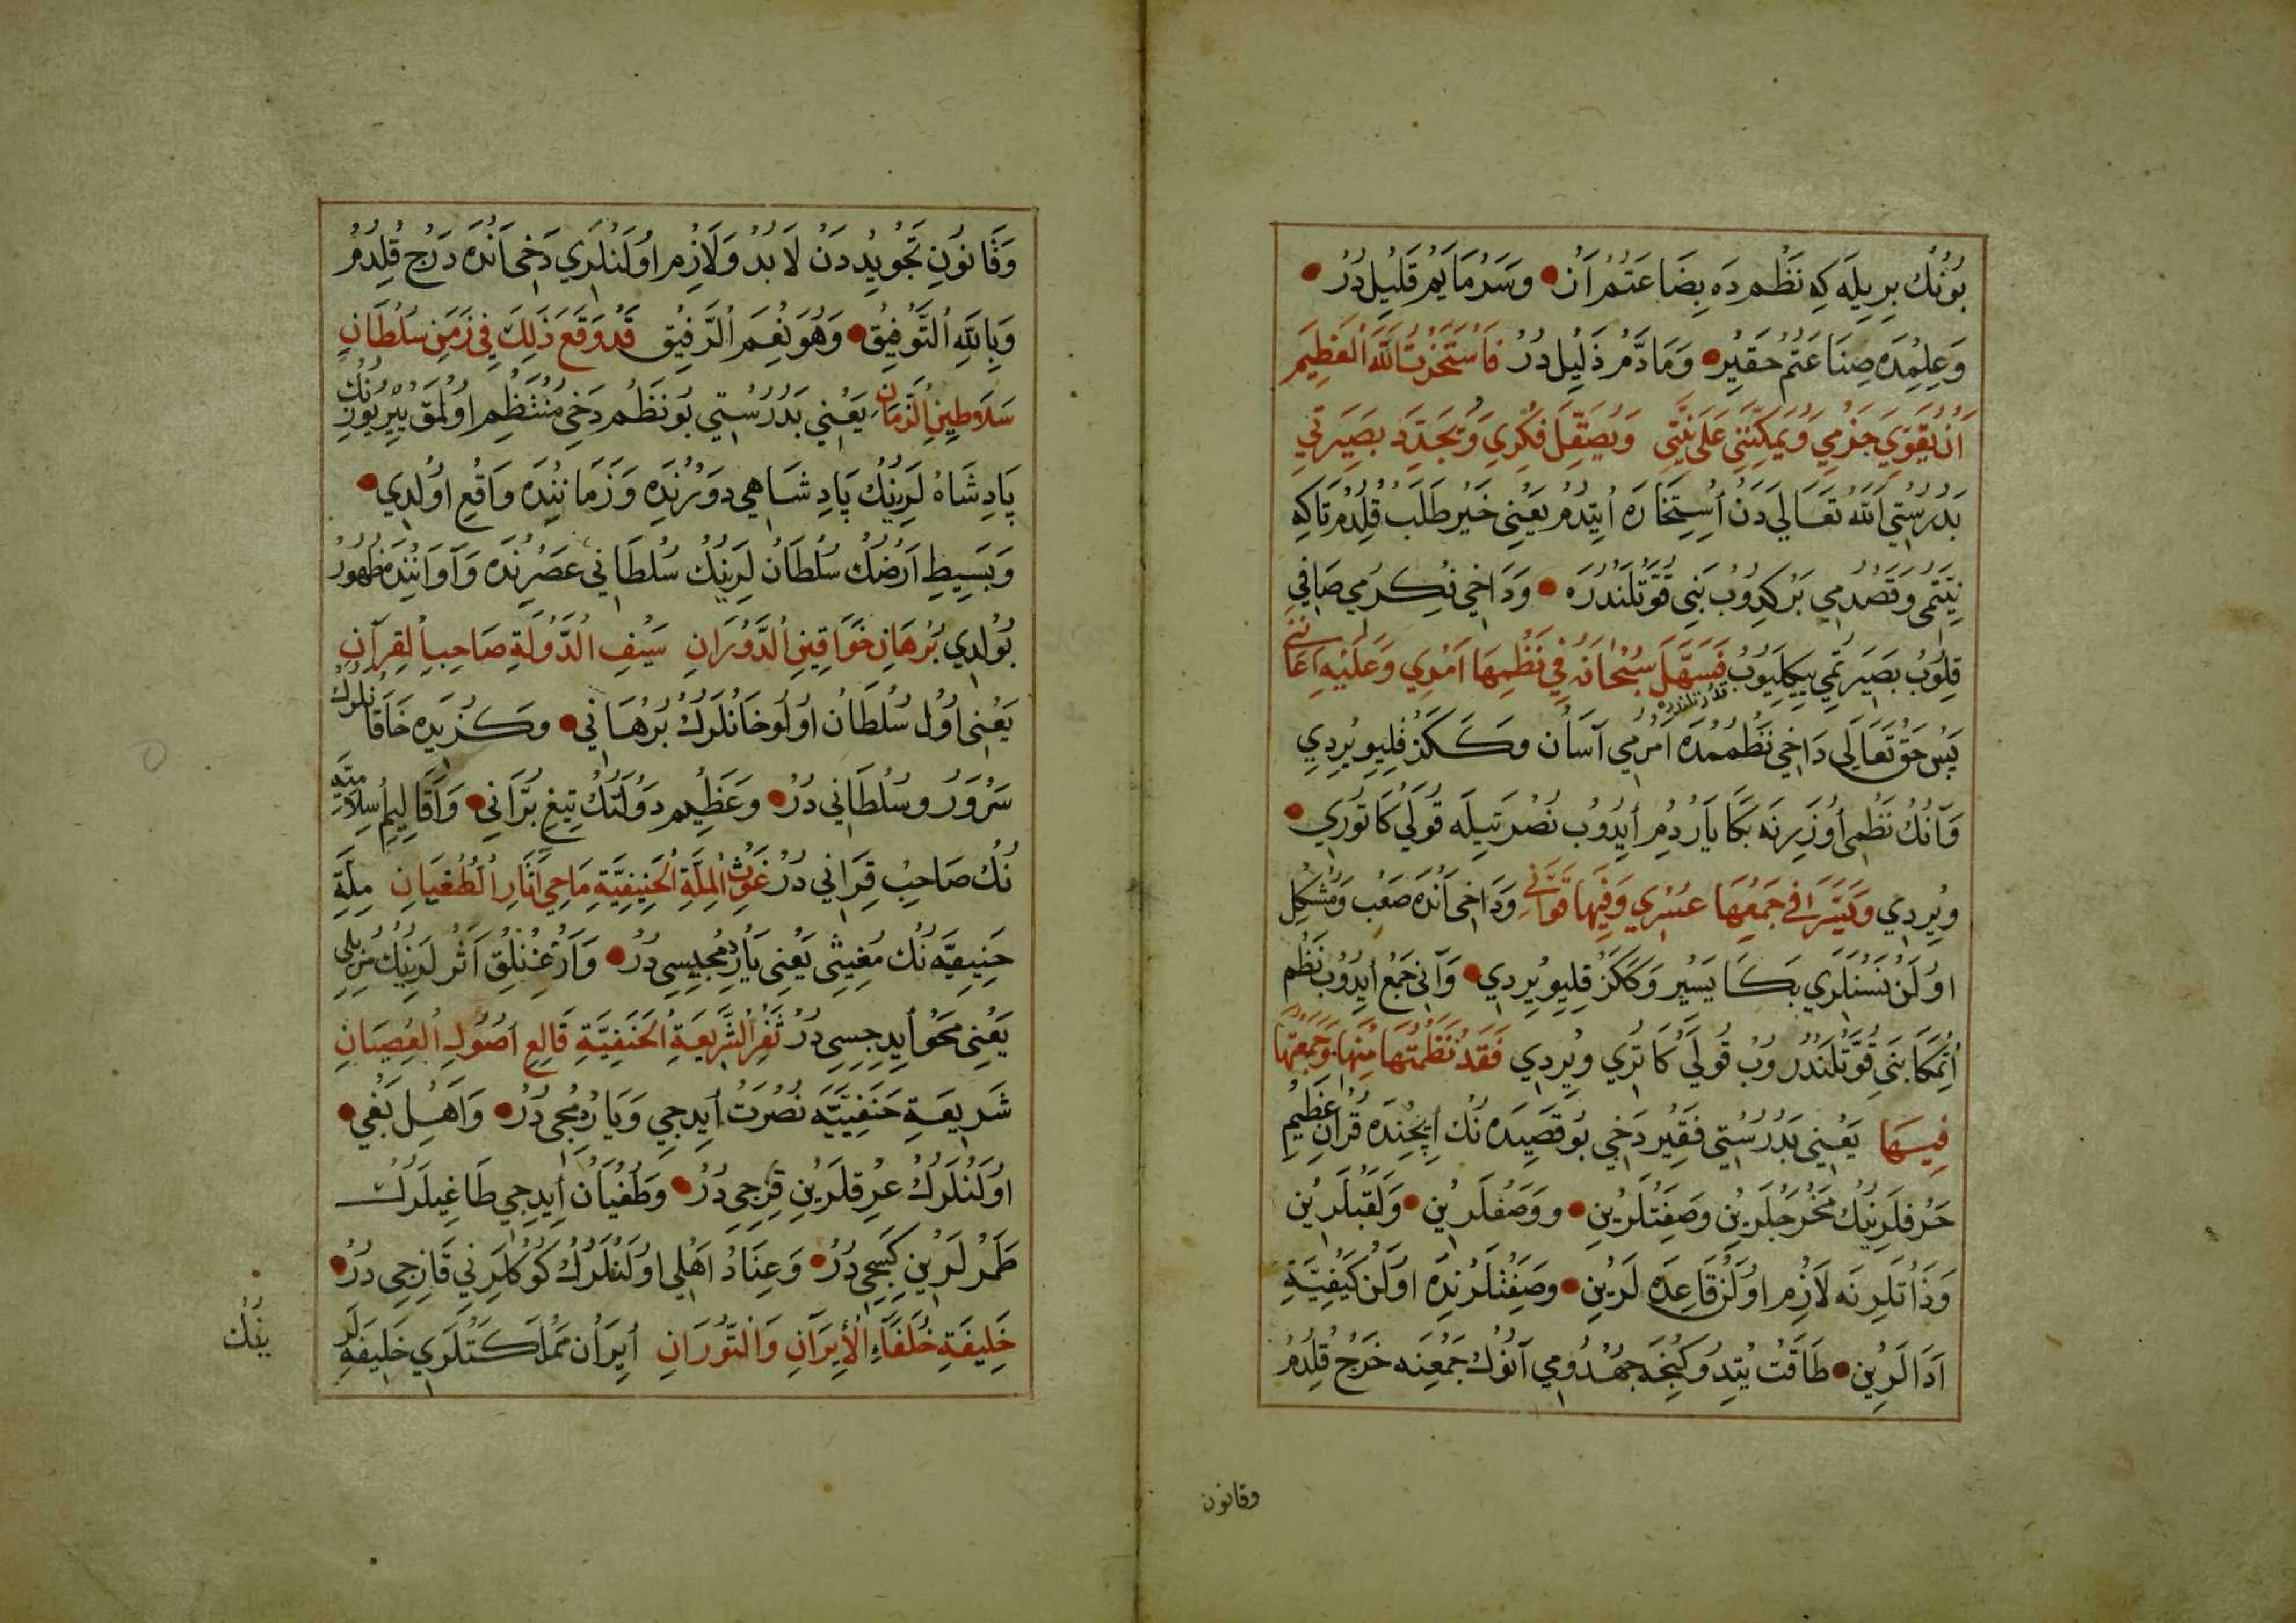 بُونُكْ بِرِيلَه كِه نَظْمدَه بِضَاعَتُمْ اَزْ وَسَرْمَايَمْ قَلِيلْ دُرْ
وَعِلِمْدَه صِنَاعَتُمْ حَقِيرْ وَمَادَّمْ ذَلِيلْ دُرْ فَاسْتَخَرْتُ اللّٰهَ الْعَظِيمَ
اَنْ يُقَوِّيَ جَزْمِي وَيُمَكِّنَنِي عَلَى نِيَّتِي وَيُصَقِّلَ فِكْرِي وَيُجَدِّدَ بَصِيرَتِي
بَدُرُسْتِي اللّٰه تَعَالَى دَنْ اِسْتِخَارَه اِيتْدُمْ يَعْنِي خَيْر طَلَبْ قِلْدُمْ تَاكِه
نِيَّتُمِي وَقَصْدُمِي بَرْكِدُوبْ بَنِي قُوَّتْلَنْدُرَه وَدَاخِي فِكْرُمِي صَافِي
قِلُوبْ بَصِيرَتُمِي يِيكِلَيُوبْ فَسَهَّلَ سُبْحَانَهُ فِي نَظْمِهَا اَمْرِي وَعَلَيْهِ اَعَانَنِي
پَسْ حَقْ تَعَالَى دَاخِي نَظْمُمْدَه اَمْرُمِي آسَانْ وَكَكَزْ قِلِيوِيرْدِي
وَآنُكْ نَظْمِي اُوزَرِنَه بَكَا يَارْدُمْ اَيِدُوبْ نُصْرَتِيلَه قُولَيْ كَاتُورِي
وِيرْدِي وَيَسَّرَ فِي جَمْعِهَا عُسْرِي وَفِيهَا قَوَّانِي وَدَاخِي اَنْدَه صَعْب وَمُشْكِل
اُولَنْ نَسْنَلَرِي بَكَا يَسِيرْ وَكَكَزْ قِلِيوِيرْدِي وَآنِي جَمْع اَيِدُوبْ نَظْم
اِتْمَكَا بَنِي قُوَّتْلَنْدُرُوبْ قُولَيْ كَاتُرِي وِيرْدِي فَقَدْ نَظَمْتُهَا مِنْهَا وَجَمَعْتُهَا
فِيهَا يَعْنِي بَدُرُسْتِي فَقِيرْ دَخِي بُو قَصِيدَه نُكْ اِيچِنْدَه قُرْآنِ عَظِيمْ
حَرْفلَرِينُكْ مَخْرَجْلَرِينِ وَصِفَتْلَرِينِ وَوَصْفلَرِينِ وَلَقَبْلَرِينِ
وَذَاتْلَرِنَه لَازِم اُولَنْ قَاعِدَه لَرِينِ وَصِفَتْلَرِنْدَه اُولَنْ كَيْفِيَّةِ
اَدَالَرِينِ طَاقَتْ يِتْدُوكِنْجَه جُهْدُومِي آنُوكْ جَمْعِنَه خَرْج قِلْدُمْ
وقانون
وَقَانُونِ تَجْوِيدْدَنْ لَابُدْ وَلَازِم اُولَنْلَرِي دَخِي اَنْدَه دَرْج قِلْدُمْ
وَبِاللّٰهِ التَّوْفِيقُ وَهُوَ نِعْمَ الرَّفِيقُ قَدْ وَقَعَ ذَلِكَ فِي زَمَنِ سُلْطَانِ
سَلَاطِينِ الزَّمَانِ يَعْنِي بَدُرُسْتِي بُو نَظْم دَخِي مُنْتَظِم اُولْمَقْ يِيرْيُوزِنُكْ
پَادِشَاهْ لَرِينُكْ پَادِشَاهِي دَوْرِنْدَه وَزَمَانِنْدَه وَاقِع اُولْدِي
وَبَسِيطِ اَرْضُكْ سُلْطَانْ لَرِينُكْ سُلْطَانِي عَصْرِنْدَه وَآوَانِنْدَه ظُهُورْ
بُولْدِي بُرْهَانِ خَوَاقِينِ الدَّوْرَانِ سَيْفِ الدَّوْلَةِ صَاحِبِ الْقِرَانِ
يَعْنِي اُول سُلْطَانْ اُولُو خَانْلَرُكْ بُرْهَانِي وَكُزِيدَه خَاقَانْلَرُكْ
سَرْوَرْ وَسُلْطَانِي دُرْ وَعَظِيم دَوْلَتُكْ تِيغِ بُرَّانِي وَاَقَالِيمِ اِسْلَامِيَّه
نُكْ صَاحِبْ قِرَانِي دُرْ غَوْثِ الْمِلَّةِ الْحَنِيفِيَّةِ مَاحِي آثَارِ الطُّغْيَانِ مِلَّةِ
حَنِيفِيَّه نُكْ مُغِيثِي يَعْنِي يَارْدُمْجِيسِي دُرْ وَاَزْغُنْلِقْ اَثَرْ لَرِينُكْ مُزِيلِي
يَعْنِي مَحْو اَيِدِجِيسِي دُرْ ثَغْرِ الشَّرِيعَةِ الْحَنَفِيَّةِ قَالِعِ اُصُولِ الْعِصْيَانِ
شَرِيعَةِ حَنَفِيَّيَه نُصْرَتْ اَيِدِجِي وَيَارْدُمْجِي دُرْ وَاَهْلِ بَغْيِ
اُولَنْلَرُكْ عِرِقلَرِينِ قِرِجِي دُرْ وَطُغْيَانْ اَيِدِجِي طَاغِيلَرُكْ
طَمَرْلَرِينِ كَسِيجِي دُرْ وَعِنَادْ اَهْلِي اُولَنْلَرُكْ كَوْكْلَرِنِي قَازِجِي دُرْ
خَلِيفَةِ خُلَفَاءِ الْإِيرَانِ وَالتُّورَانِ اِيرَانْ مَمْلَكَتْلَرِي خَلِيفَه لَرِ
ينُكْ